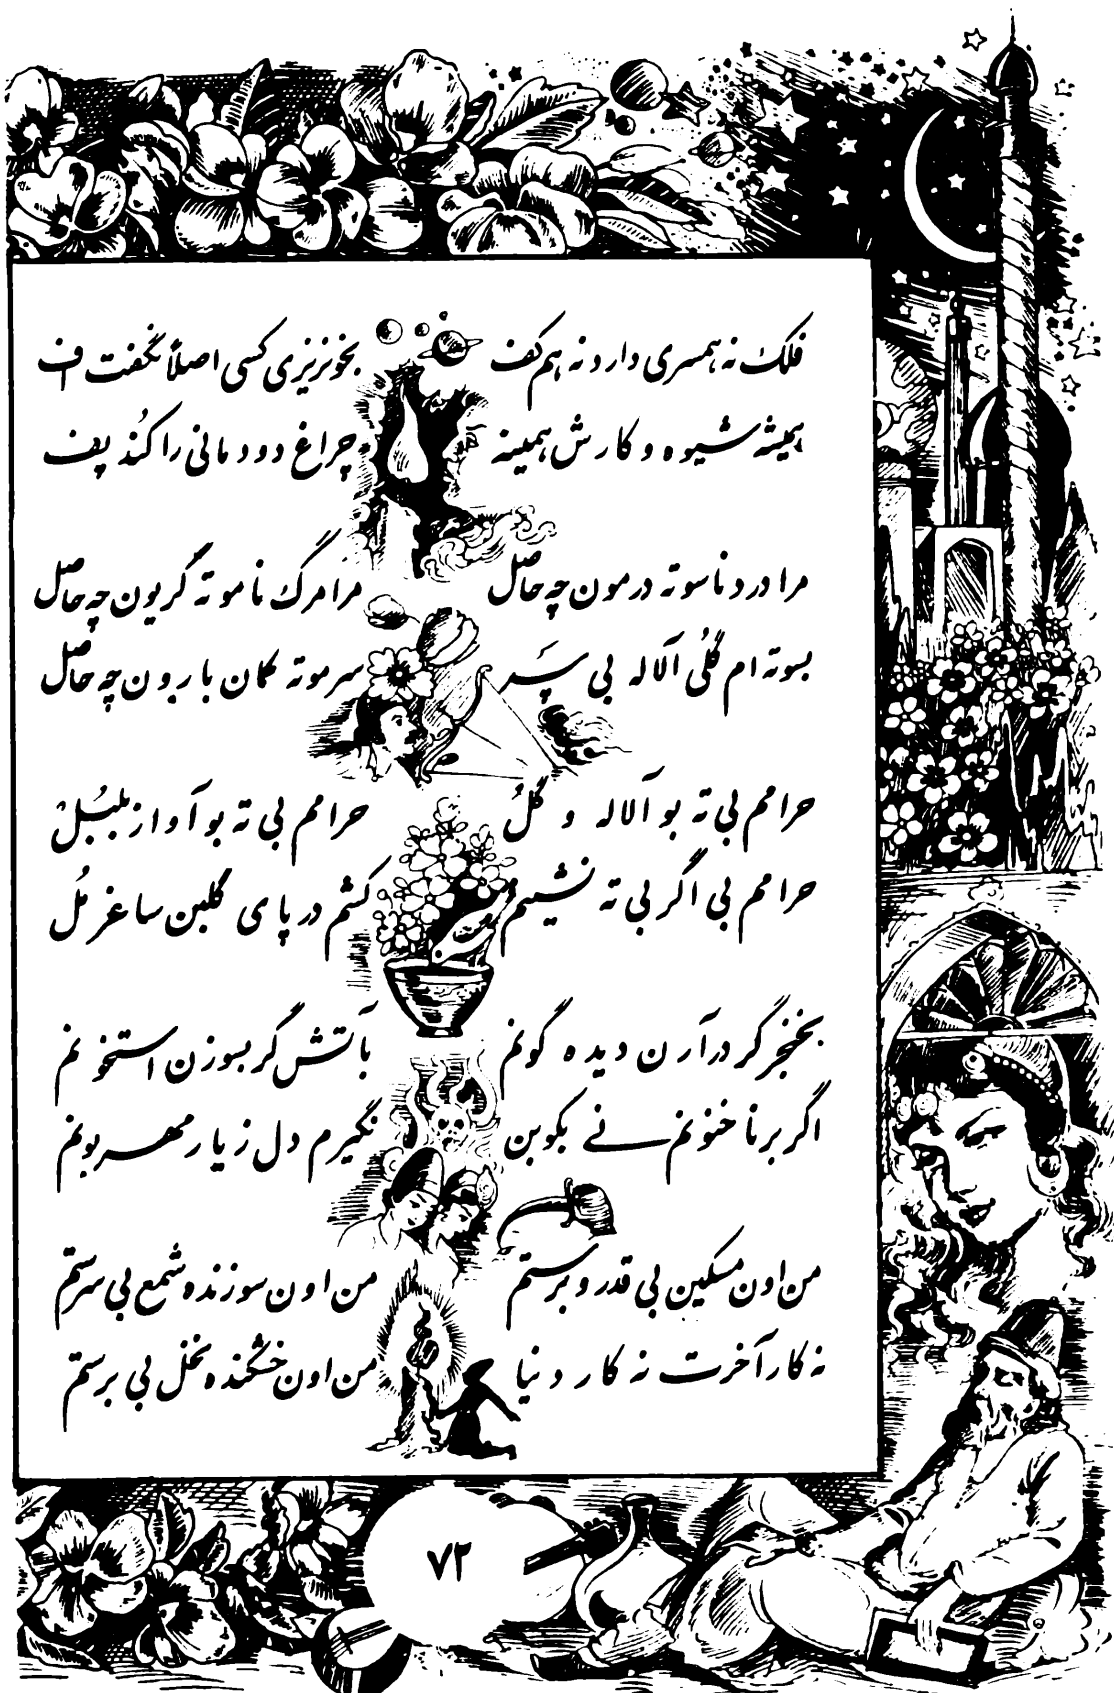 فلک نه همسری دارد نه هم کف بخونریزی کسی اصلاً نگفت اف
همیشه شیوه و کارش همینه چراغ دودمانی را کُند پف
مرا درد ناسوته درمون چه حاصل مرا مرگ ناموته گریون چه حاصل
بسوته ام گلُی آلاله بی سَر سرموته کمان بارون چه حاصل
حرامم بی ته بو آلاله و گلُ حرامم بی ته بو آواز بلبُلْ
حرامم بی اگر بی ته نشینم کشم در پای گلبن ساغر مُل
بخنجر گر درآرن دیده گونم بآتش گر بسوزن استخونم
اگر برناخنونم نی بکوبن نگیرم دل ز یار مهربونم
من اون مسکین بی قدر و برستم من اون سوزنده شمع بی سرستم
نه کار آخرت نه کار دنیا من اون خشکنده نخل بی برستم
۷۲